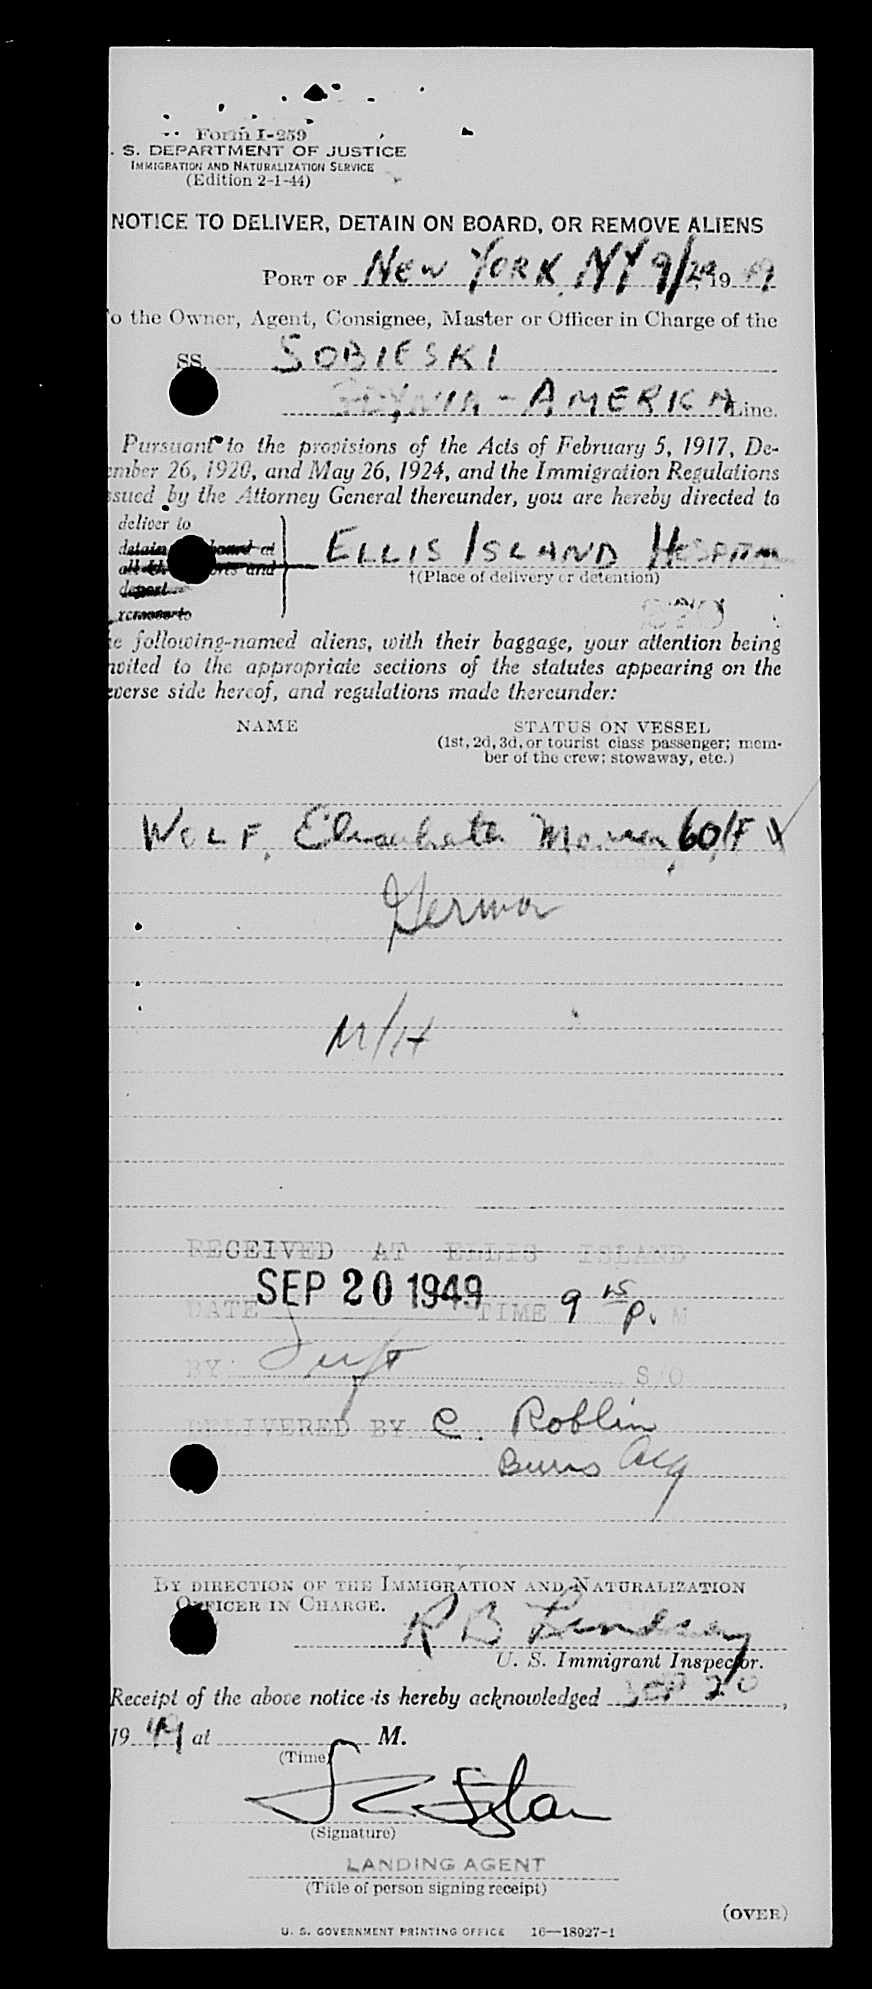 Form I-259
. S. DEPARTMENT OF JUSTICE
IMMIGRATION AND NATURALIZATION SERVICE
(Edition 2-1-44)
NOTICE TO DELIVER, DETAIN ON BOARD, OR REMOVE ALIENS
PORT OF NEW YORK, NY 9/20, 19 49
o the Owner, Agent, Consignee, Master or Officer in Charge of the
SS. SOBIESKI
GDYNIA - AMERICA Line.
Pursuant to the provisions of the Acts of February 5, 1917, De-
ember 26, 1920, and May 26, 1924, and the Immigration Regulations
ssued by the Attorney General thereunder, you are hereby directed to
deliver to
detain board at
all ports and
deport
remove to
ELLIS ISLAND HOSPITAL
†(Place of delivery or detention)
e following-named aliens, with their baggage, your attention being
nvited to the appropriate sections of the statutes appearing on the
everse side hereof, and regulations made thereunder:
NAME STATUS ON VESSEL
(1st, 2d, 3d, or tourist class passenger; mem-
ber of the crew; stowaway, etc.)
WOLF, 60/F
German
M/H
RECEIVED AT ELLIS ISLAND
DATE SEP 20 1949 TIME 9 15 P. M
BY S/O
DELIVERED BY C. Roblin
Burns
BY DIRECTION OF THE IMMIGRATION AND NATURALIZATION
OFFICER IN CHARGE.
R B Lindsey
U. S. Immigrant Inspector.
Receipt of the above notice is hereby acknowledged SEP 20,
19 49 at M.
(Time)
(Signature)
LANDING AGENT
(Title of person signing receipt)
(OVER)
U. S. GOVERNMENT PRINTING OFFICE 16—18927-1